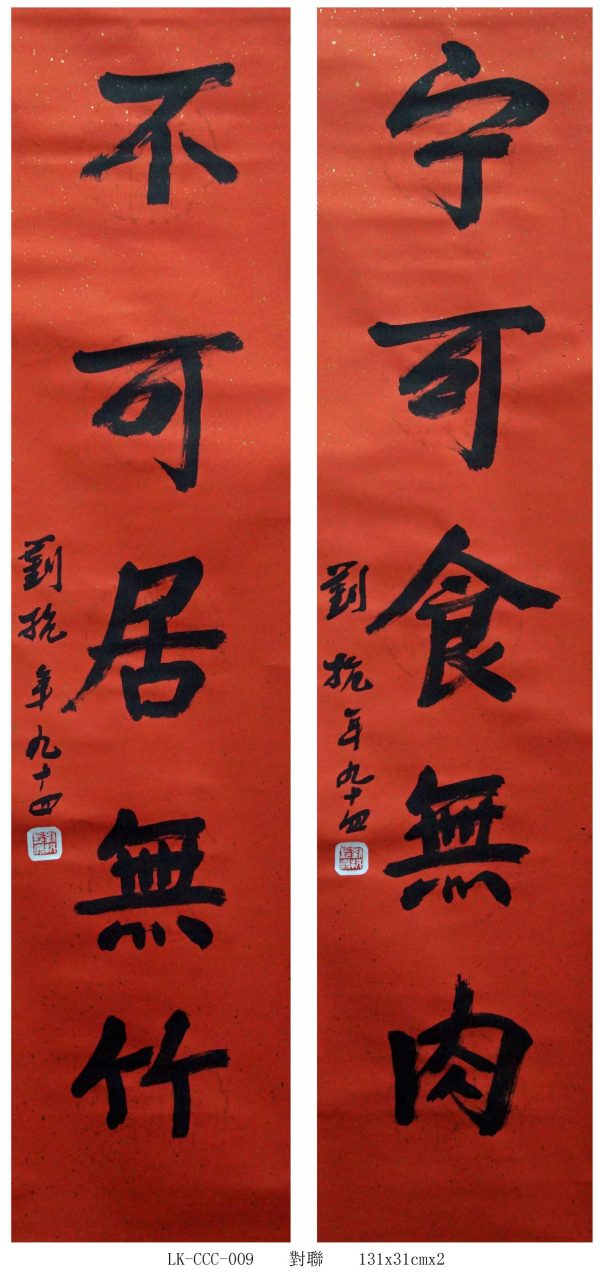 宁可食無肉
劉抗年九十四
不可居無竹
劉抗年九十四
LK-CCC-009 對聯 131x31cmx2